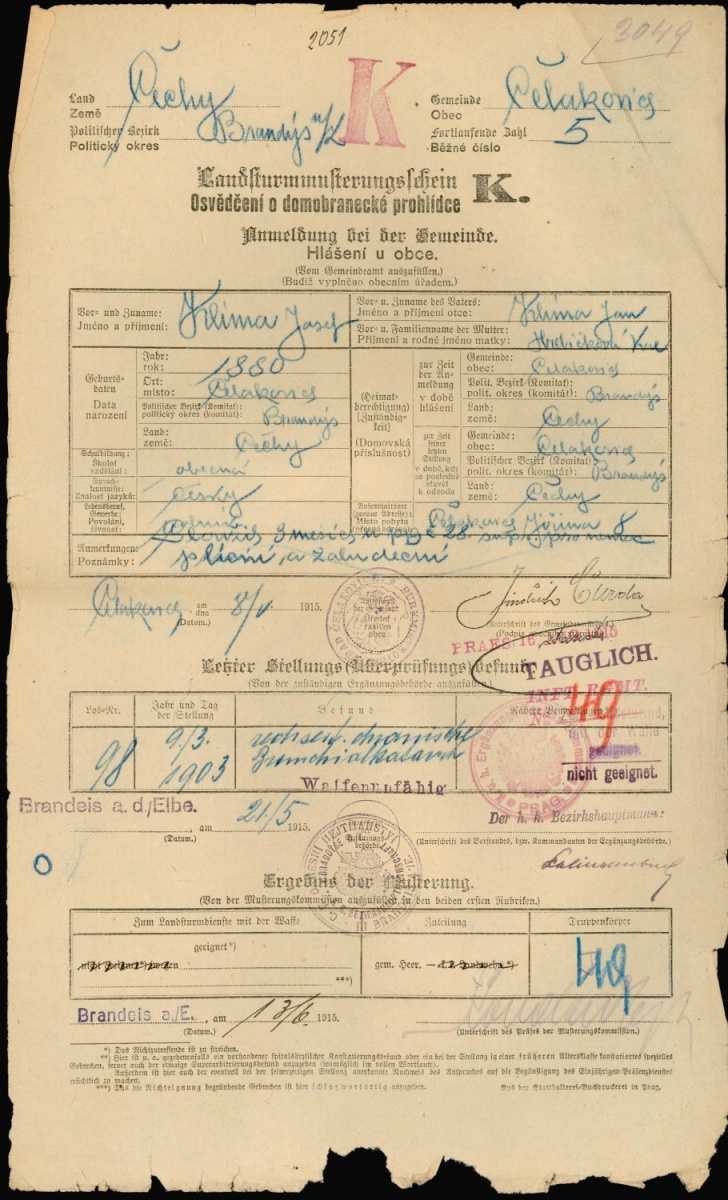 2051
3049
K
Land Čechy
Země
Politischer Bezirk Brandýs n/L
Politický okres
Gemeinde Čelakovice
Obec
Fortlaufende Zahl 5
Běžné číslo
Landsturmmusterungsschein K.
Osvědčení o domobranecké prohlídce
Anmeldung bei der Gemeinde.
Hlášení u obce.
(Vom Gemeindeamt auszufüllen.)
(Budiž vyplněno obecním úřadem.)
Vor- und Zuname: Klíma Josef
Jméno a příjmení:
Vor- u. Zuname des Vaters: Klíma Jan
Jméno a příjmení otce:
Vor- u. Familienname der Mutter:
Příjmení a rodné jméno matky:
Geburtsdaten
Data narození
Jahr: 1880
rok:
Ort: Čelakovice
místo:
Politischer Bezirk (Komitat): Brandýs
politický okres (komitát):
Land: Čechy
země:
(Heimatberechtigung)
(Zuständigkeit)
(Domovská příslušnost)
zur Zeit der Anmeldung
v době hlášení
Gemeinde: Čelakovice
obec:
Polit. Bezirk (Komitat): Brandýs
polit. okres (komitát):
Land: Čechy
země:
zur Zeit seiner letzten Stellung
v době, kdy se posledně stavěl k odvodu
Gemeinde: Čelakovice
obec:
Politischer Bezirk (Komitat): Brandýs
polit. okres (komitát):
Land: Čechy
země:
Schulbildung: obecná
Školní vzdělání:
Sprachkenntnisse: česky
Znalost jazyků:
Lebensberuf, Gewerbe:
Povolání, živnost:
Aufenthaltsort (genaue Adresse): Čelakovice Jiřina 8
Místo pobytu
Anmerkungen: Sloužil 3 měsíce u p. pl. č 28. sup. pro nemoc
Poznámky: plicní a žaludeční
Čelakovice am 8/V 1915.
dne
(Datum.)
Jindřich
(Unterschrift des Gemeindevorstehers.)
PRAG 16. 1915
TAUGLICH.
INFT. RGMT.
No 49
Letzter Stellungs(Überprüfungs)befund
(Von der zuständigen Ergänzungsbehörde auszufüllen.)
Los-Nr.
Jahr und Tag der Stellung
Befund
Nähere Bemerkungen
98
9./3. 1903
Bronchialkatarrh
Waffenunfähig
geeignet.
nicht geeignet.
Brandeis a. d./Elbe., am 21/5 1915.
(Datum.)
Der k. k. Bezirkshauptmann:
(Unterschrift des Vorstandes, bzw. Kommandanten der Ergänzungsbehörde.)
Ergebnis der Musterung.
(Von der Musterungskommission auszufüllen in den beiden ersten Rubriken.)
Zum Landsturmdienste mit der Waffe
Zuteilung
Truppenkörper
geeignet*)
***)
gem. Heer.
49
Brandeis a./E., am 13/6. 1915.
(Datum.)
(Unterschrift des Präses der Musterungskommission.)
*) Das Nichtzutreffende ist zu streichen.
**) Hier ist u. a. gegebenenfalls ein vorhandener spitalsärztlicher Konstatierungsbefund oder ein bei der Stellung in einer früheren Altersklasse konstatiertes spezielles Gebrechen, ferner auch der etwaige Superarbitrierungsbefund anzugeben (womöglich im vollen Wortlaute).
Außerdem ist hier auch der eventuell bei der seinerzeitigen Stellung anerkannte Nachweis des Anspruches auf die Begünstigung des Einjährigen-Präsenzdienstes ersichtlich zu machen.
***) Das die Nichteignung begründende Gebrechen ist hier schlagwortartig anzugeben.
Aus der Statthalterei-Buchdruckerei in Prag.